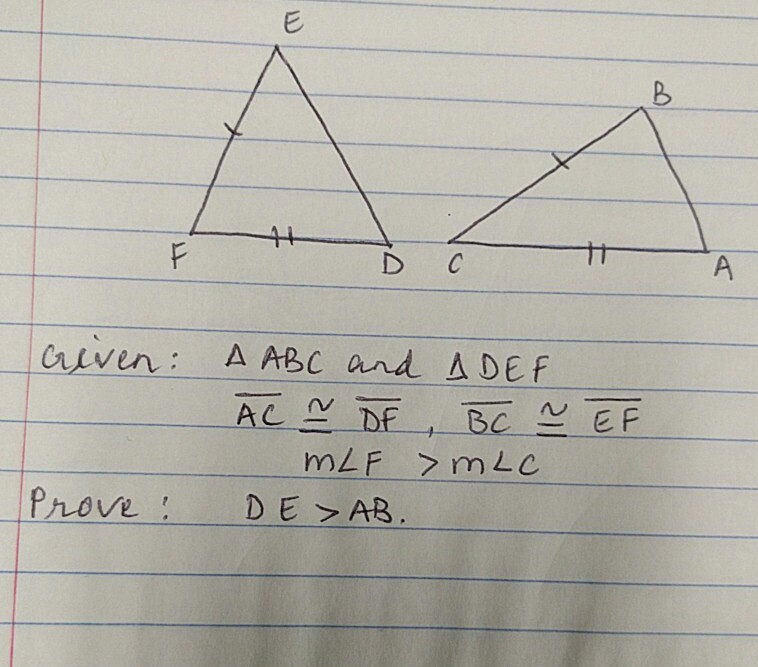 E
B
F
D
C
A
Given: Δ ABC and Δ DEF
A̅C̅ ≅ D̅F̅ , B̅C̅ ≅ E̅F̅
m∠F > m∠C
Prove: DE > AB.